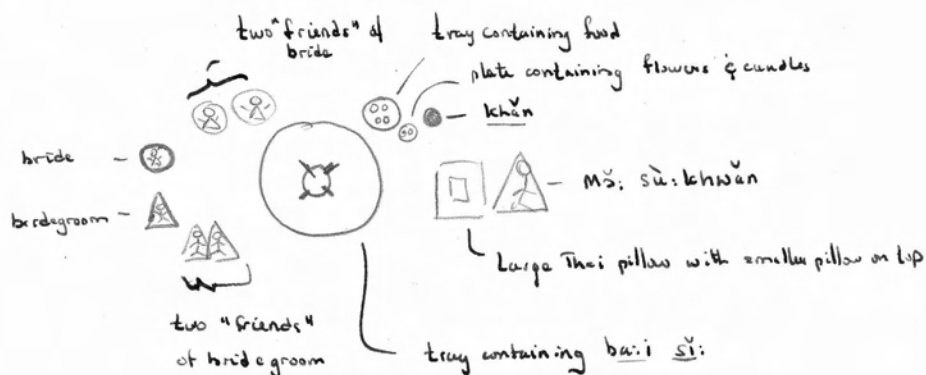 two "friends" of
bride
tray containing food
plate containing flowers & candles
khǎn
bride
birdegroom
Mɔ̌: sù:khwǎn
Large Thai pillow with smaller pillow on top
two "friends"
of bridegroom
tray containing ba:i sǐ: